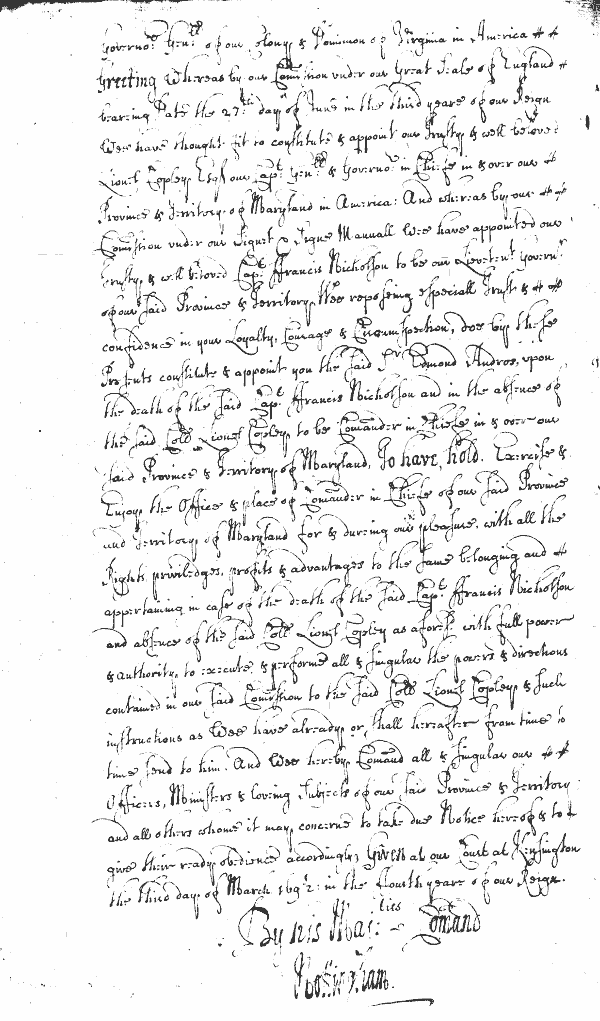 Governo.r Gen.ll of our Colony & Dominion of Virginia in America
Greeting Whereas by our Comission vnder our Great Seale of England
bearing Date the 27.th day of June in the third yeare of our Reign
Wee have thought fit to constitute & appoint our Trusty & well beloved
Lionel Copley Esq.r our Cap.t Gen.ll & Governo.r in Cheife in & over our
Province & Territory of Maryland in America: And whereas by our
Comission vnder our Signet & Signe Manuall Wee have appointed our
trusty & well beloved Cap.t ffrancis Nicholson to be our Lieuten.t Govern.r
of our said Province & Territory, Wee reposeing especiall Trust &
confidence in your Loyalty, Courage & Circumspection, doe by these
Presents constitute & appoint you the said S.r Edmond Andros, vpon
the death of the said Cap.t ffrancis Nicholson and in the absence of
the said Coll. Lionel Copley, to be Comander in Cheife in & over our
said Province & Territory of Maryland, To have, hold, Exercise &
Enjoy the Office & place of Comander in Cheife of our said Province
and Territory of Maryland for & dureing our pleasure, with all the
Rights, priviledges, profits & advantages to the same belonging and
appertaining in case of the death of the said Cap.t ffrancis Nicholson
and absence of the said Coll. Lionel Copley as afores.d with full power
& authority, to execute & performe all & singular the powers & directions
contained in our said Comission to the said Coll. Lionel Copley, & such
instructions as Wee have already or shall hereafter from time to
time send to him. And Wee hereby Comand all & singular our
Officers, Ministers & loveing Subjects of our said Province & Territory
and all others whome it may concerne to take due Notice hereof & to
give their ready obedience accordingly, Given at our Court at Kensington
the third day of March 1692: in the ffourth yeare of our Reign.
By his Maj:ties Comand
Nottingham.